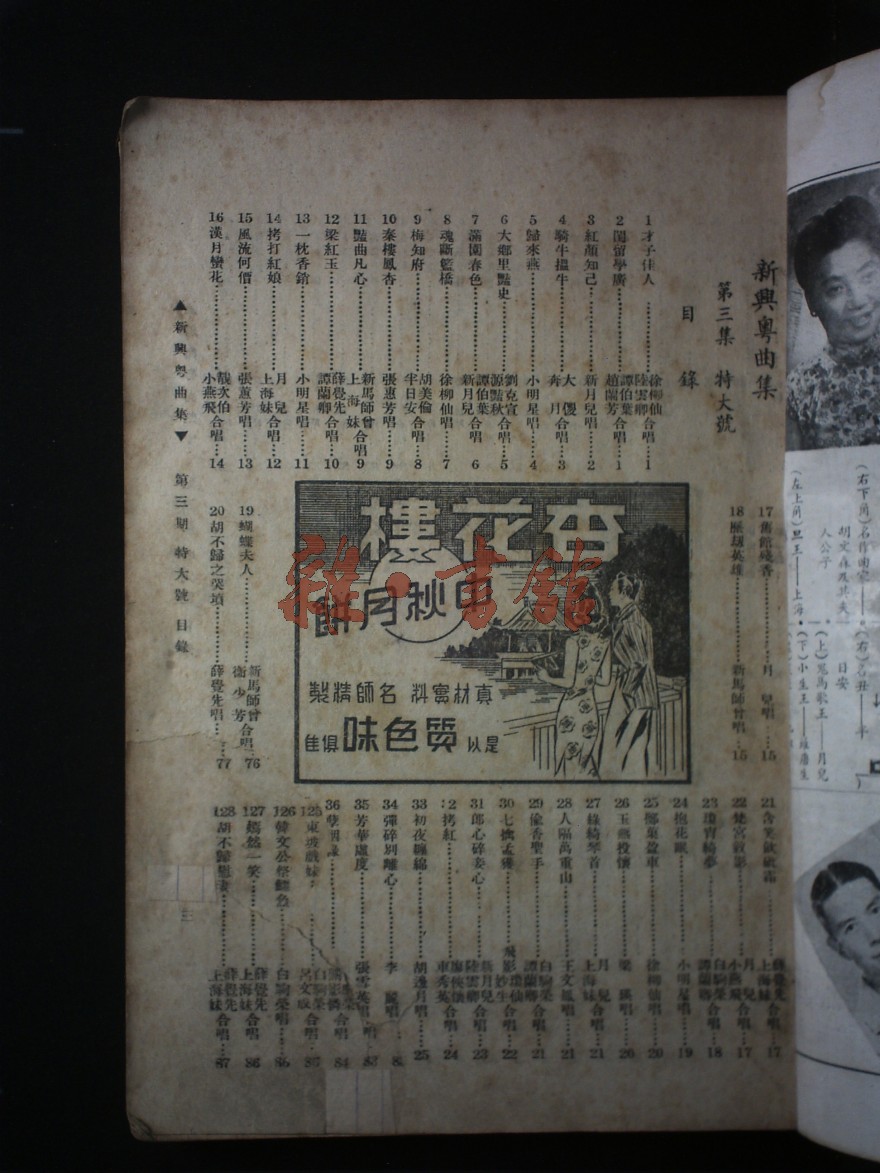 新興粵曲集
第三集 特大號
目錄
1 才子佳人 徐柳仙 陸雲卿合唱 1
2 閨留學廣 譚伯葉 趙蘭芳合唱 1
3 紅顏知己 新月兒唱 2
4 騎牛搵牛 大傻 奔月合唱 3
5 歸來燕 小明星唱 4
6 大鄉里豔史 劉克宣 源豔秋合唱 5
7 滿園春色 譚伯葉 新月兒合唱 6
8 魂斷藍橋 徐柳仙唱 7
9 梅知府 胡美倫 半日安合唱 8
10 秦樓鳳杏 張惠芳唱 9
11 豔曲凡心 新馬師曾 上海妹合唱 9
12 梁紅玉 薛覺先 譚蘭卿合唱 10
13 一枕香銷 小明星唱 11
14 拷打紅娘 月兒 上海妹合唱 12
15 風流何價 張蕙芳唱 13
16 漢月蠻花 靚次伯 小燕飛合唱 14
17 舊館殘香 月兒唱 15
18 歷劫英雄 新馬師曾唱 15
19 蝴蝶夫人 新馬師曾 衛少芳合唱 76
20 胡不歸之哭墳 薛覺先唱 77
杏花樓
中秋月餅
真材實料 名師精製
是以 質色味 俱佳
21 含笑飲砒霜 薛覺先 上海妹合唱 17
22 梵宮艷影 月兒 小燕飛合唱 17
23 瓊宵綺夢 白駒榮 譚蘭卿合唱 18
24 抱花眠 小明星唱 19
25 擲菓盈車 徐柳仙唱 20
26 玉燕投懷 梁瑛唱 20
27 綠綺琴音 月兒 上海妹合唱 21
28 人隔萬重山 王文鳳唱 21
29 偷香聖手 白駒榮 譚蘭卿合唱 21
30 七擒孟獲 合唱 22
31 郎心碎妾心 新月兒 陸雲卿合唱 23
拷紅 廖俠懷 車秀英合唱 24
33 初夜纏綿 胡逸月唱 25
34 彈碎別離心 李 唱
35 芳華虛度 張雪英唱
36 孽
125 東坡戲妹 白駒榮 呂文成
126 韓文公祭鱷魚 白駒榮唱 86
127 嫣然一笑 薛覺先 上海妹合唱 86
128 胡不歸慰妻 薛覺先 上海妹合唱 87
▲新興粵曲集▼ 第三期 特大號 目錄
三
雜·書館
(右下角)名作曲家
胡文森及其夫
人公子
(左上角)旦王——上海
(右)名丑——半
日安
(上)鬼馬歌王——月兒
(下)小生王